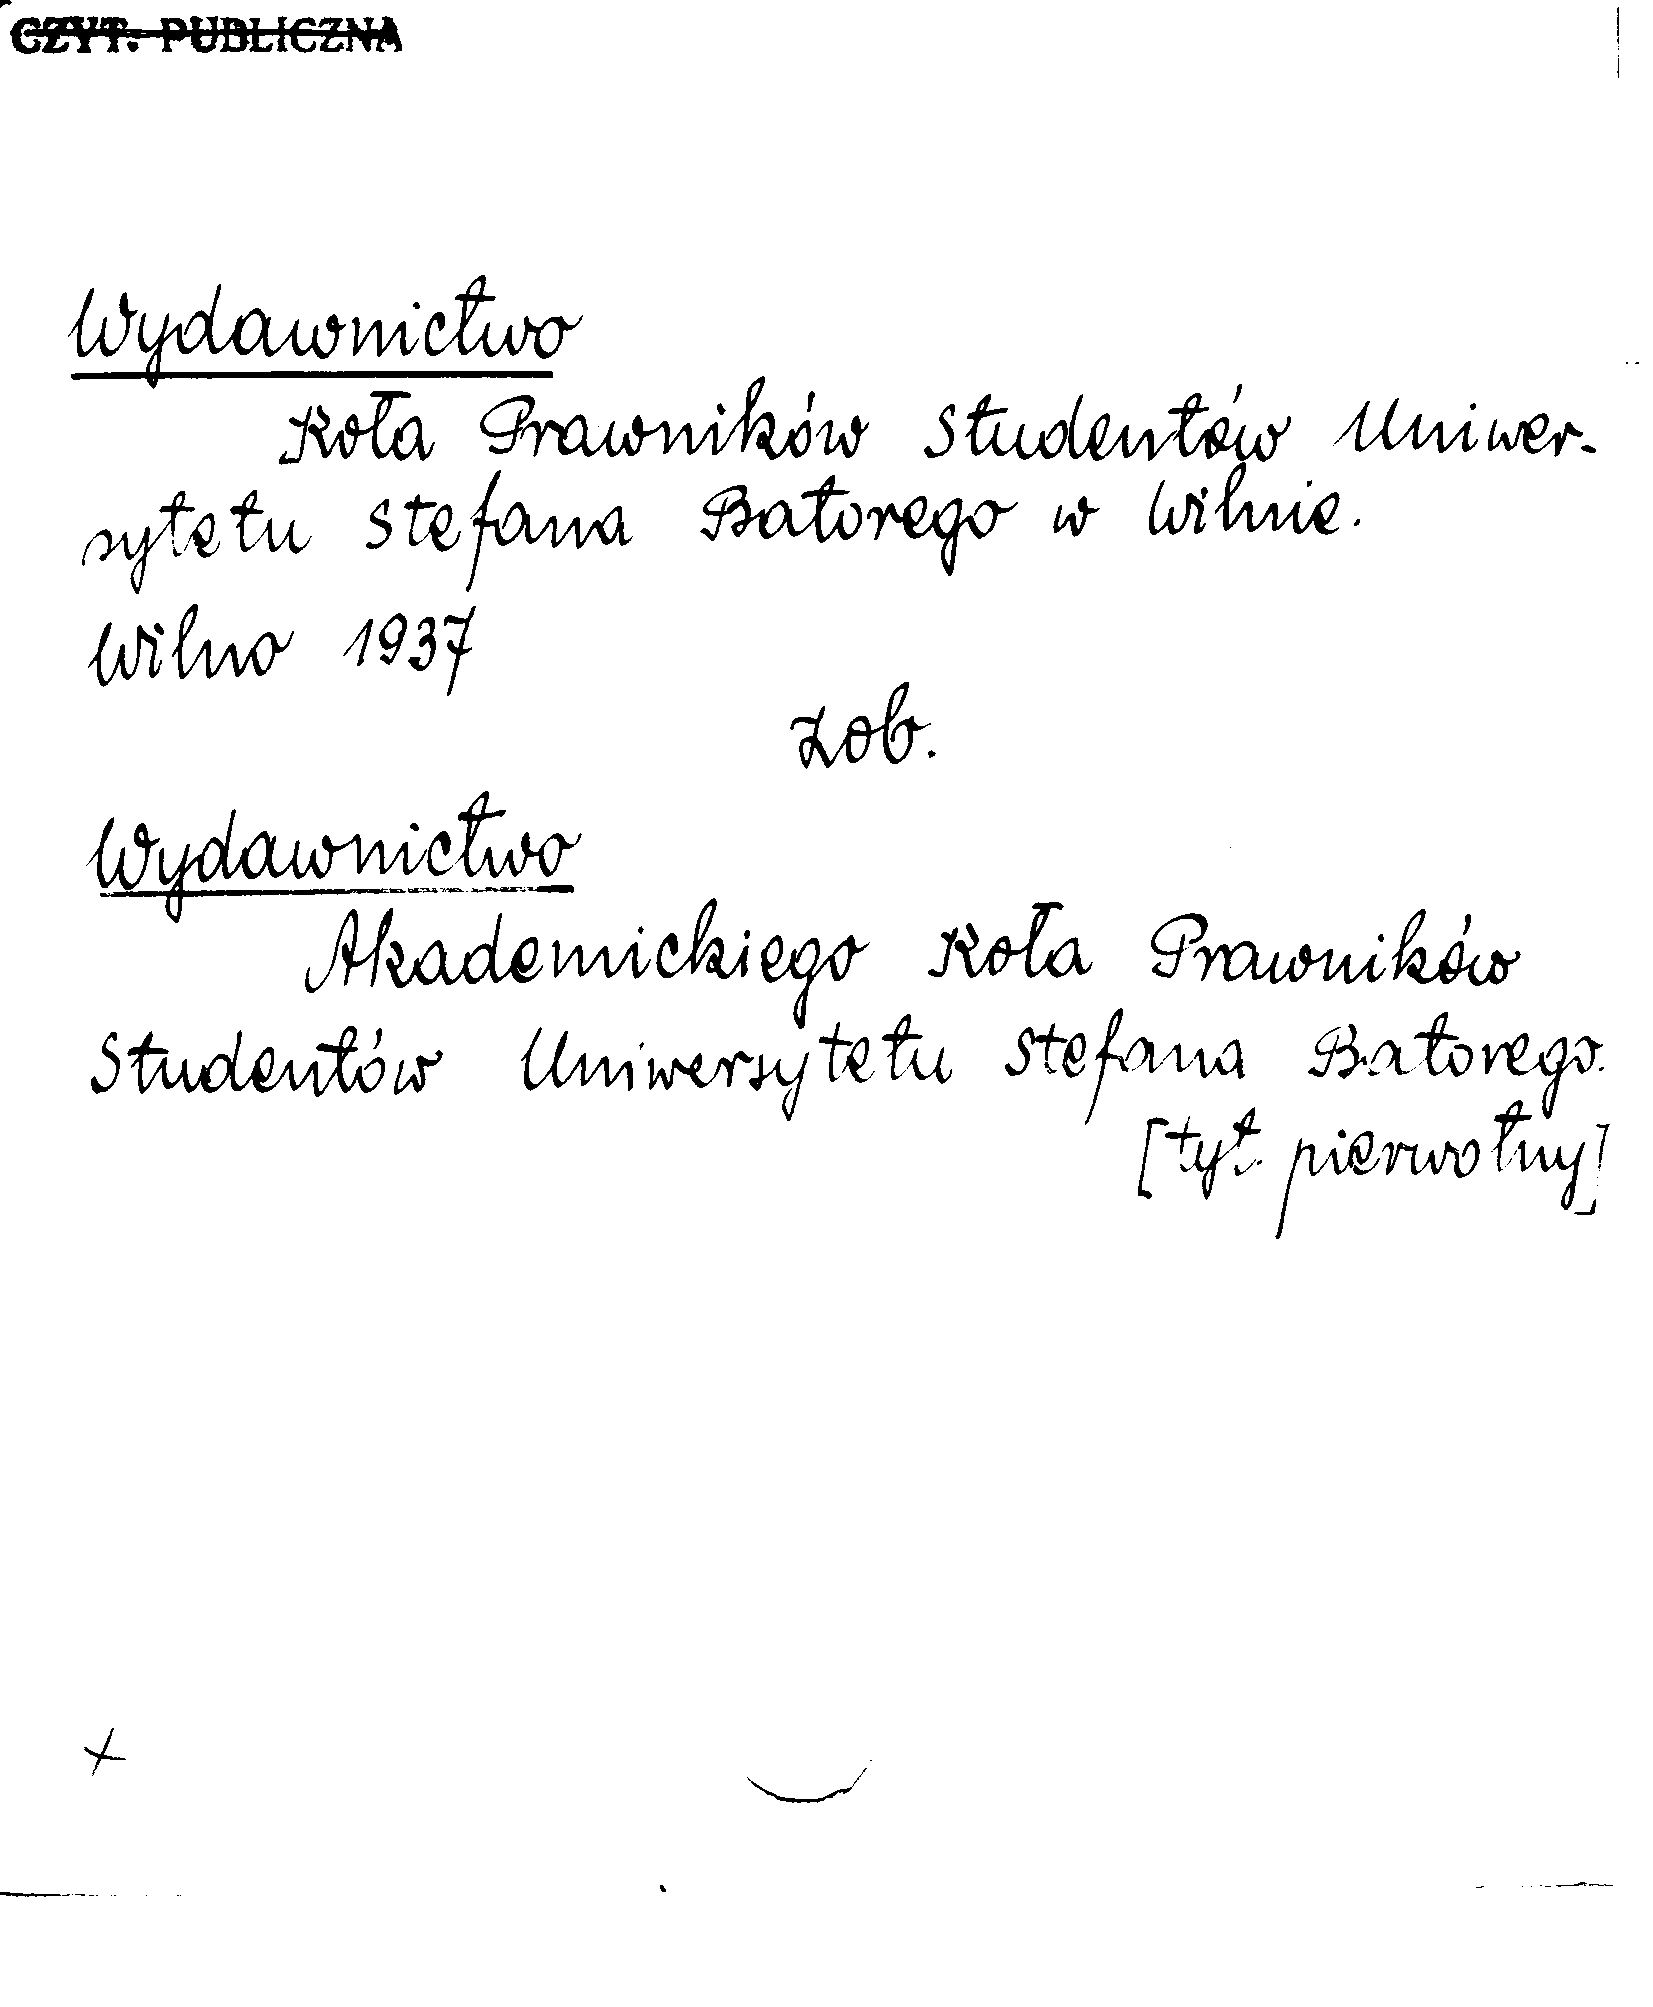 CZYT. PUBLICZNA
Wydawnictwo
Koła Prawników Studentów Uniwer-
sytetu Stefana Batorego w Wilnie.
Wilno 1937
Zob.
Wydawnictwo
Akademickiego Koła Prawników
Studentów Uniwersytetu Stefana Batorego.
[tyt. pierwotny]